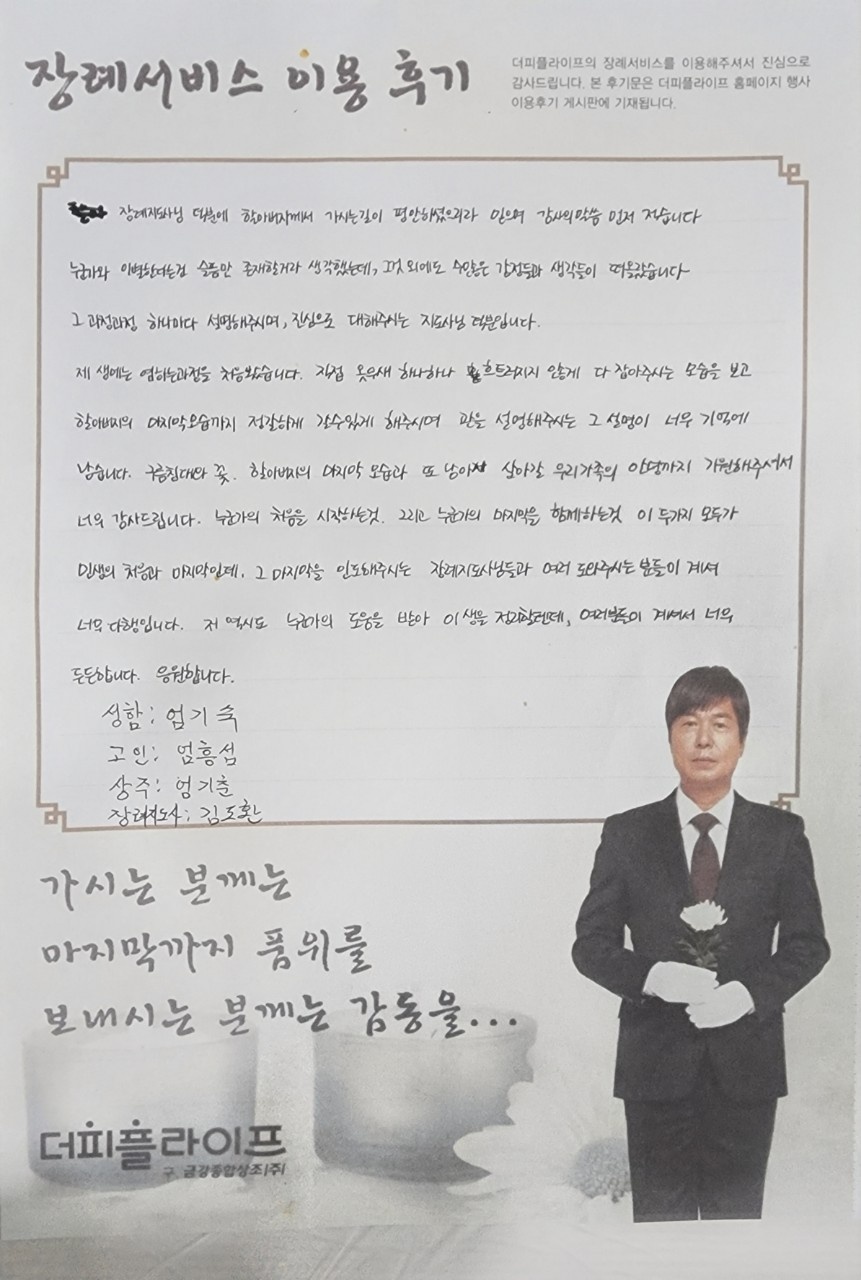 장례서비스 이용 후기
더피플라이프의 장례서비스를 이용해주셔서 진심으로
감사드립니다. 본 후기문은 더피플라이프 홈페이지 행사
이용후기 게시판에 기재됩니다.
장례지도사님 덕분에 할아버지께서 가시는길이 평안하셨으리라 믿으며 감사의말씀 먼저 적습니다
누군가와 이별한다는건 슬픔만 존재할거라 생각했는데, 그것 외에도 수많은 감정들과 생각들이 떠올랐습니다
그 과정과정 하나마다 설명해주시며, 진심으로 대해주시는 지도사님 덕분입니다.
제 생에는 염하는과정을 처음봤습니다. 직접 옷매새 하나하나 흐트러지지 않게 다 잡아주시는 모습을 보고
할아버지의 마지막모습까지 정갈하게 갈수있게 해주시며 관을 설명해주시는 그 설명이 너무 기억에
남습니다. 구름침대와 꽃. 할아버지의 마지막 모습과 또 남아 살아갈 우리가족의 안녕까지 기원해주셔서
너무 감사드립니다. 누군가의 처음을 시작하는것. 그리고 누군가의 마지막을 함께하는것 이 두가지 모두가
인생의 처음과 마지막인데. 그 마지막을 인도해주시는 장례지도사님들과 여러 도와주시는 분들이 계셔
너무 다행입니다. 저 역시도 누군가의 도움을 받아 이 생을 정리할텐데, 여러분들이 계셔서 너무
든든합니다. 응원합니다.
성함: 엄기숙
고인: 엄흥섭
상주: 엄기춘
장례지도사: 김도환
가시는 분께는
마지막까지 품위를
보내시는 분께는 감동을...
더피플라이프
구. 금강종합상조(주)